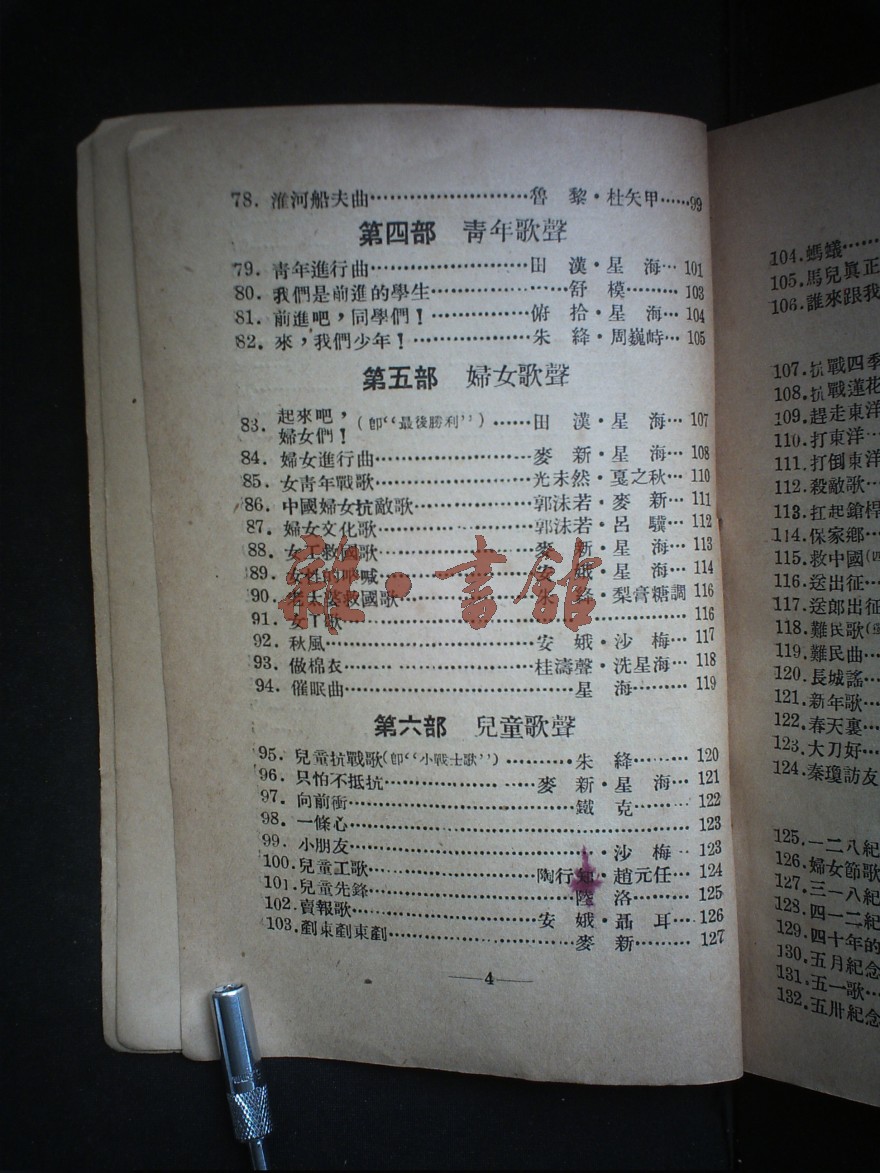 78. 淮河船夫曲……………………魯 黎·杜矢甲……99
第四部 青年歌聲
79. 青年進行曲……………………田 漢·星 海… 101
80. 我們是前進的學生……………………舒 模……… 103
81. 前進吧，同學們！……………………俯 拾·星 海… 104
82. 來，我們少年！……………………朱 絳·周巍峙… 105
第五部 婦女歌聲
83. 起來吧，婦女們！(卽“最後勝利”)……田 漢·星 海… 107
84. 婦女進行曲……………………麥 新·星 海… 108
85. 女青年戰歌……………………光未然·戛之秋… 110
86. 中國婦女抗敵歌……………………郭沫若·麥 新… 111
87. 婦女文化歌……………………郭沫若·呂 驥… 112
88. 女工救國歌……………………麥 新·星 海… 113
89. 女性的呐喊……………………安 娥·星 海… 114
90. 老太婆救國歌……………………朱 絳·梨膏糖調 116
91. 女丁歌……………………116
92. 秋風……………………安 娥·沙 梅… 117
93. 做棉衣……………………桂濤聲·洗星海… 118
94. 催眠曲……………………星 海……… 119
第六部 兒童歌聲
95. 兒童抗戰歌(卽“小戰士歌”)…………朱 絳……… 120
96. 只怕不抵抗……………………麥 新·星 海… 121
97. 向前衝……………………鐵 克……… 122
98. 一條心……………………123
99. 小朋友……………………沙 梅… 123
100. 兒童工歌……………………陶行知·趙元任… 124
101. 兒童先鋒……………………陸 洛……… 125
102. 賣報歌……………………安 娥·聶 耳… 126
103. 剷東剷東剷……………………麥 新……… 127
4
雜·書館
104. 螞蟻……
105. 馬兒眞正
106. 誰來跟我
107. 抗戰四季
108. 抗戰蓮花
109. 趕走東洋
110. 打東洋…
111. 打倒東洋
112. 殺敵歌…
113. 扛起鎗桿
114. 保家鄉…
115. 救中國(四
116. 送出征…
117. 送郎出征
118. 難民歌
119. 難民曲…
120. 長城謠…
121. 新年歌…
122. 春天裏…
123. 大刀好…
124. 秦瓊訪友
125. 一二八紀
126. 婦女節歌
127. 三一八紀
128. 四一二紀
129. 四十年的
130. 五月紀念
131. 五一歌…
132. 五卅紀念